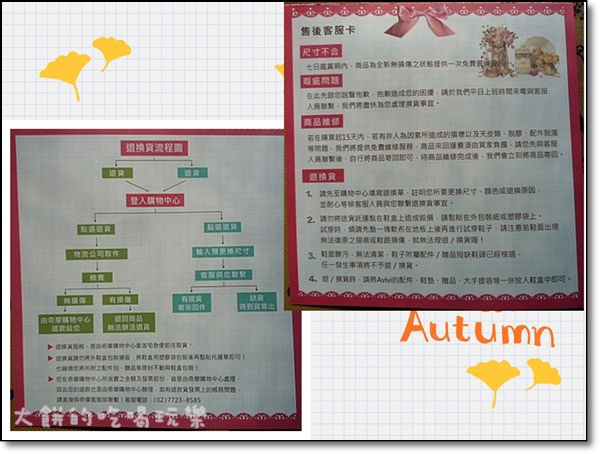 售後客服卡
尺寸不合
七日鑑賞期內，商品為全新無損傷之狀態提供一次免費退換服務
瑕疵問題
在此先跟您說聲抱歉，抱歉造成您的困擾，請於我們平日上班時間來電與客服
人員聯繫，我們將盡快為您處理換貨事宜。
商品維修
若在購買起15天內，若有非人為因素所造成的損壞以及天皮類、脫膠、配件脫落
等問題，我們將提供免費維修服務，商品來回運費須由買家負擔，請您先與客服
人員聯繫後，自行將商品寄回即可，待商品維修完成後，我們會立刻將商品寄回。
退換貨
1. 請先至購物中心填寫退換單，註明您所要更換尺寸、顏色或退換原因，
並耐心等候客服人員與您聯繫退換貨事宜。
2. 請勿將送貨託運黏在鞋盒上造成毀損，請黏貼在外包裝紙或塑膠袋上。
試穿時，煩請先墊一塊軟布在地板上後再進行試穿鞋子，請注意若鞋面出現
無法復原之摺痕或鞋跟損傷，就無法辦理退/換貨喔！
3. 鞋面髒污、無法清潔，鞋子附屬配件/贈品短缺鞋頭已經摺過，
任一發生事項將不予退/換貨。
4. 退/換貨時，請將Avivi的配件，鞋墊、贈品、大手提袋等一併放入鞋盒中即可。
退換貨流程圖
退貨 退貨
登入購物中心
點選退貨 點選退貨
物流公司取件 輸入預更換尺寸
檢查 客服與您聯繫
無損傷 有損傷 有現貨 缺貨
由奇摩購物中心 退回商品 寄來回件 待到貨寄出
退款給您 無法辦法退貨
▶ 退換貨服務，是由奇摩購物中心委派宅急便前往取貨。
▶ 退換貨請勿將外鞋盒包裝損毀，將鞋盒用塑膠袋包裝後再黏貼托運單即可！
也麻煩您將所附之配件包，贈品等原封不動與鞋盒包裝！
▶ 您在奇摩購物中心所消費之金額及發票部份，皆是由奇摩購物中心處理，
因此您的退款也是由奇摩購物中心辦理，如有退款貨發票上的帳務問題，
請直接與奇摩客服部聯繫！客服電話：(02)7723-8585
Autumn
大餅的吃喝玩樂